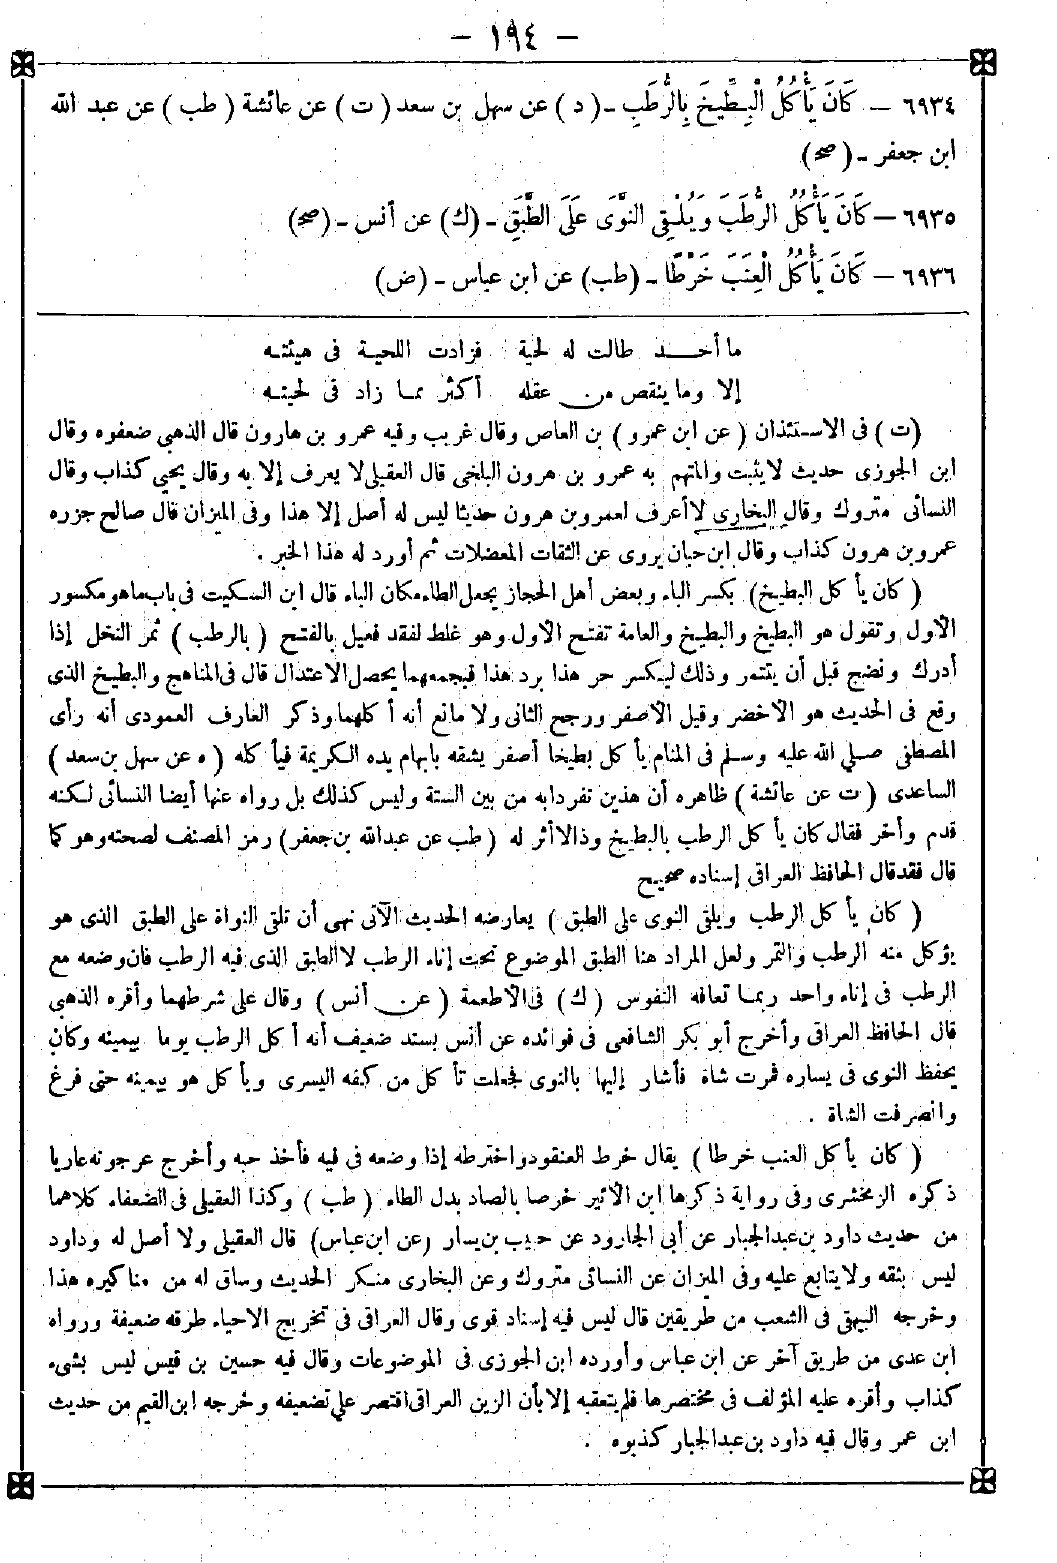 - ١٩٤ -
٦٩٣٤ - كَانَ يَأْكُلُ الْبِطِّيخَ بِالرُّطَبِ - (د) عن سهل بن سعد (ت) عن عائشة (طب) عن عبد الله
ابن جعفر - (صح)
٦٩٣٥ - كَانَ يَأْكُلُ الرُّطَبَ وَيُلْقِي النَّوَى عَلَى الطَّبَقِ - (ك) عن أنس - (صح)
٦٩٣٦ - كَانَ يَأْكُلُ الْعِنَبَ خَرْطًا - (طب) عن ابن عباس - (ض)
ما أحــد طالت له لحية فزادت اللحية فى هيئته
إلا وما ينقص من عقله أكثر مما زاد فى لحيته
(ت) فى الاستئذان (عن ابن عمرو) بن العاص وقال غريب وفيه عمرو بن هارون قال الذهبي ضعفوه وقال
ابن الجوزى حديث لا يثبت والمتهم به عمرو بن هرون البلخى قال العقيلى لا يعرف إلا به وقال يحيى كذاب وقال
النسائى متروك وقال البخارى لا أعرف لعمرو بن هرون حديثا ليس له أصل إلا هذا وفى الميزان قال صالح جزره
عمرو بن هرون كذاب وقال ابن حبان يروى عن الثقات المعضلات ثم أورد له هذا الخبر .
(كان يأكل البطيخ) بكسر الباء وبعض أهل الحجاز يجعل الطاء مكان الباء قال ابن السكيت فى باب ما هو مكسور
الأول وتقول هو البطيخ والبطيخ والعامة تفتح الأول وهو غلط لفقد فعيل بالفتح (بالرطب) ثمر النخل إذا
أدرك ونضج قبل أن يتتمر وذلك ليكسر حر هذا برد هذا فبجمعهما يحصل الاعتدال قال فى المناهج والبطيخ الذى
وقع فى الحديث هو الأخضر وقيل الأصفر ورجح الثانى ولا مانع أنه أكلهما وذكر العارف العمودى أنه رأى
المصطفى صلى الله عليه وسلم فى المنام يأكل بطيخا أصفر يشقه بابهام يده الكريمة فيأكله (ه عن سهل بن سعد)
الساعدى (ت عن عائشة) ظاهره أن هذين تفردا به من بين الستة وليس كذلك بل رواه عنها أيضا النسائى لكنه
قدم وأخر فقال كان يأكل الرطب بالبطيخ وذا لا أثر له (طب عن عبدالله بن جعفر) رمز المصنف لصحته وهو كما
قال فقد قال الحافظ العراقى إسناده صحيح
(كان يأكل الرطب ويلقى النوى على الطبق) يعارضه الحديث الآتى نهى أن تلقى النواة على الطبق الذى هو
يؤكل منه الرطب والتمر ولعل المراد هنا الطبق الموضوع تحت إناء الرطب لا الطبق الذى فيه الرطب فان وضعه مع
الرطب فى إناء واحد ربما تعافه النفوس (ك) فى الأطعمة (عن أنس) وقال على شرطهما وأقره الذهبى
قال الحافظ العراقى وأخرج أبو بكر الشافعى فى فوائده عن أنس بسند ضعيف أنه أكل الرطب يوما بيمينه وكان
يحفظ النوى فى يساره فمرت شاة فأشار إليها بالنوى فجعلت تأكل من كفه اليسرى ويأكل هو بيمينه حتى فرغ
وانصرفت الشاة .
(كان يأكل العنب خرطا) يقال خرط العنقود واخترطه إذا وضعه فى فيه فأخذ حبه وأخرج عرجونه عاريا
ذكره الزمخشرى وفى رواية ذكرها ابن الأثير خرصا بالصاد بدل الطاء (طب) وكذا العقيلى فى الضعفاء كلاهما
من حديث داود بن عبدالجبار عن أبى الجارود عن حبيب بن يسار (عن ابن عباس) قال العقيلى ولا أصل له وداود
ليس بثقه ولا يتابع عليه وفى الميزان عن النسائى متروك وعن البخارى منكر الحديث وساق له من مناكيره هذا
وخرجه البيهقى فى الشعب من طريقين قال ليس فيه إسناد قوى وقال العراقى فى تخريج الاحياء طرقه ضعيفة ورواه
ابن عدى من طريق آخر عن ابن عباس وأورده ابن الجوزى فى الموضوعات وقال فيه حسين بن قيس ليس بشىء
كذاب وأقره عليه المؤلف فى مختصرها فلم يتعقبه إلا بأن الزين العراقى اقتصر على تضعيفه وخرجه ابن القيم من حديث
ابن عمر وقال فيه داود بن عبدالجبار كذبوه .